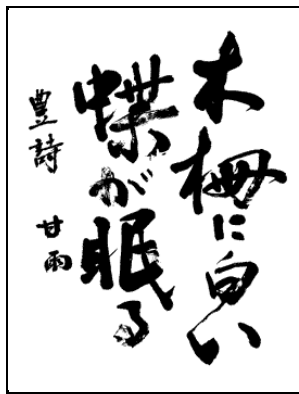 木柵に白い
蝶が眠る
豊詩 甘雨